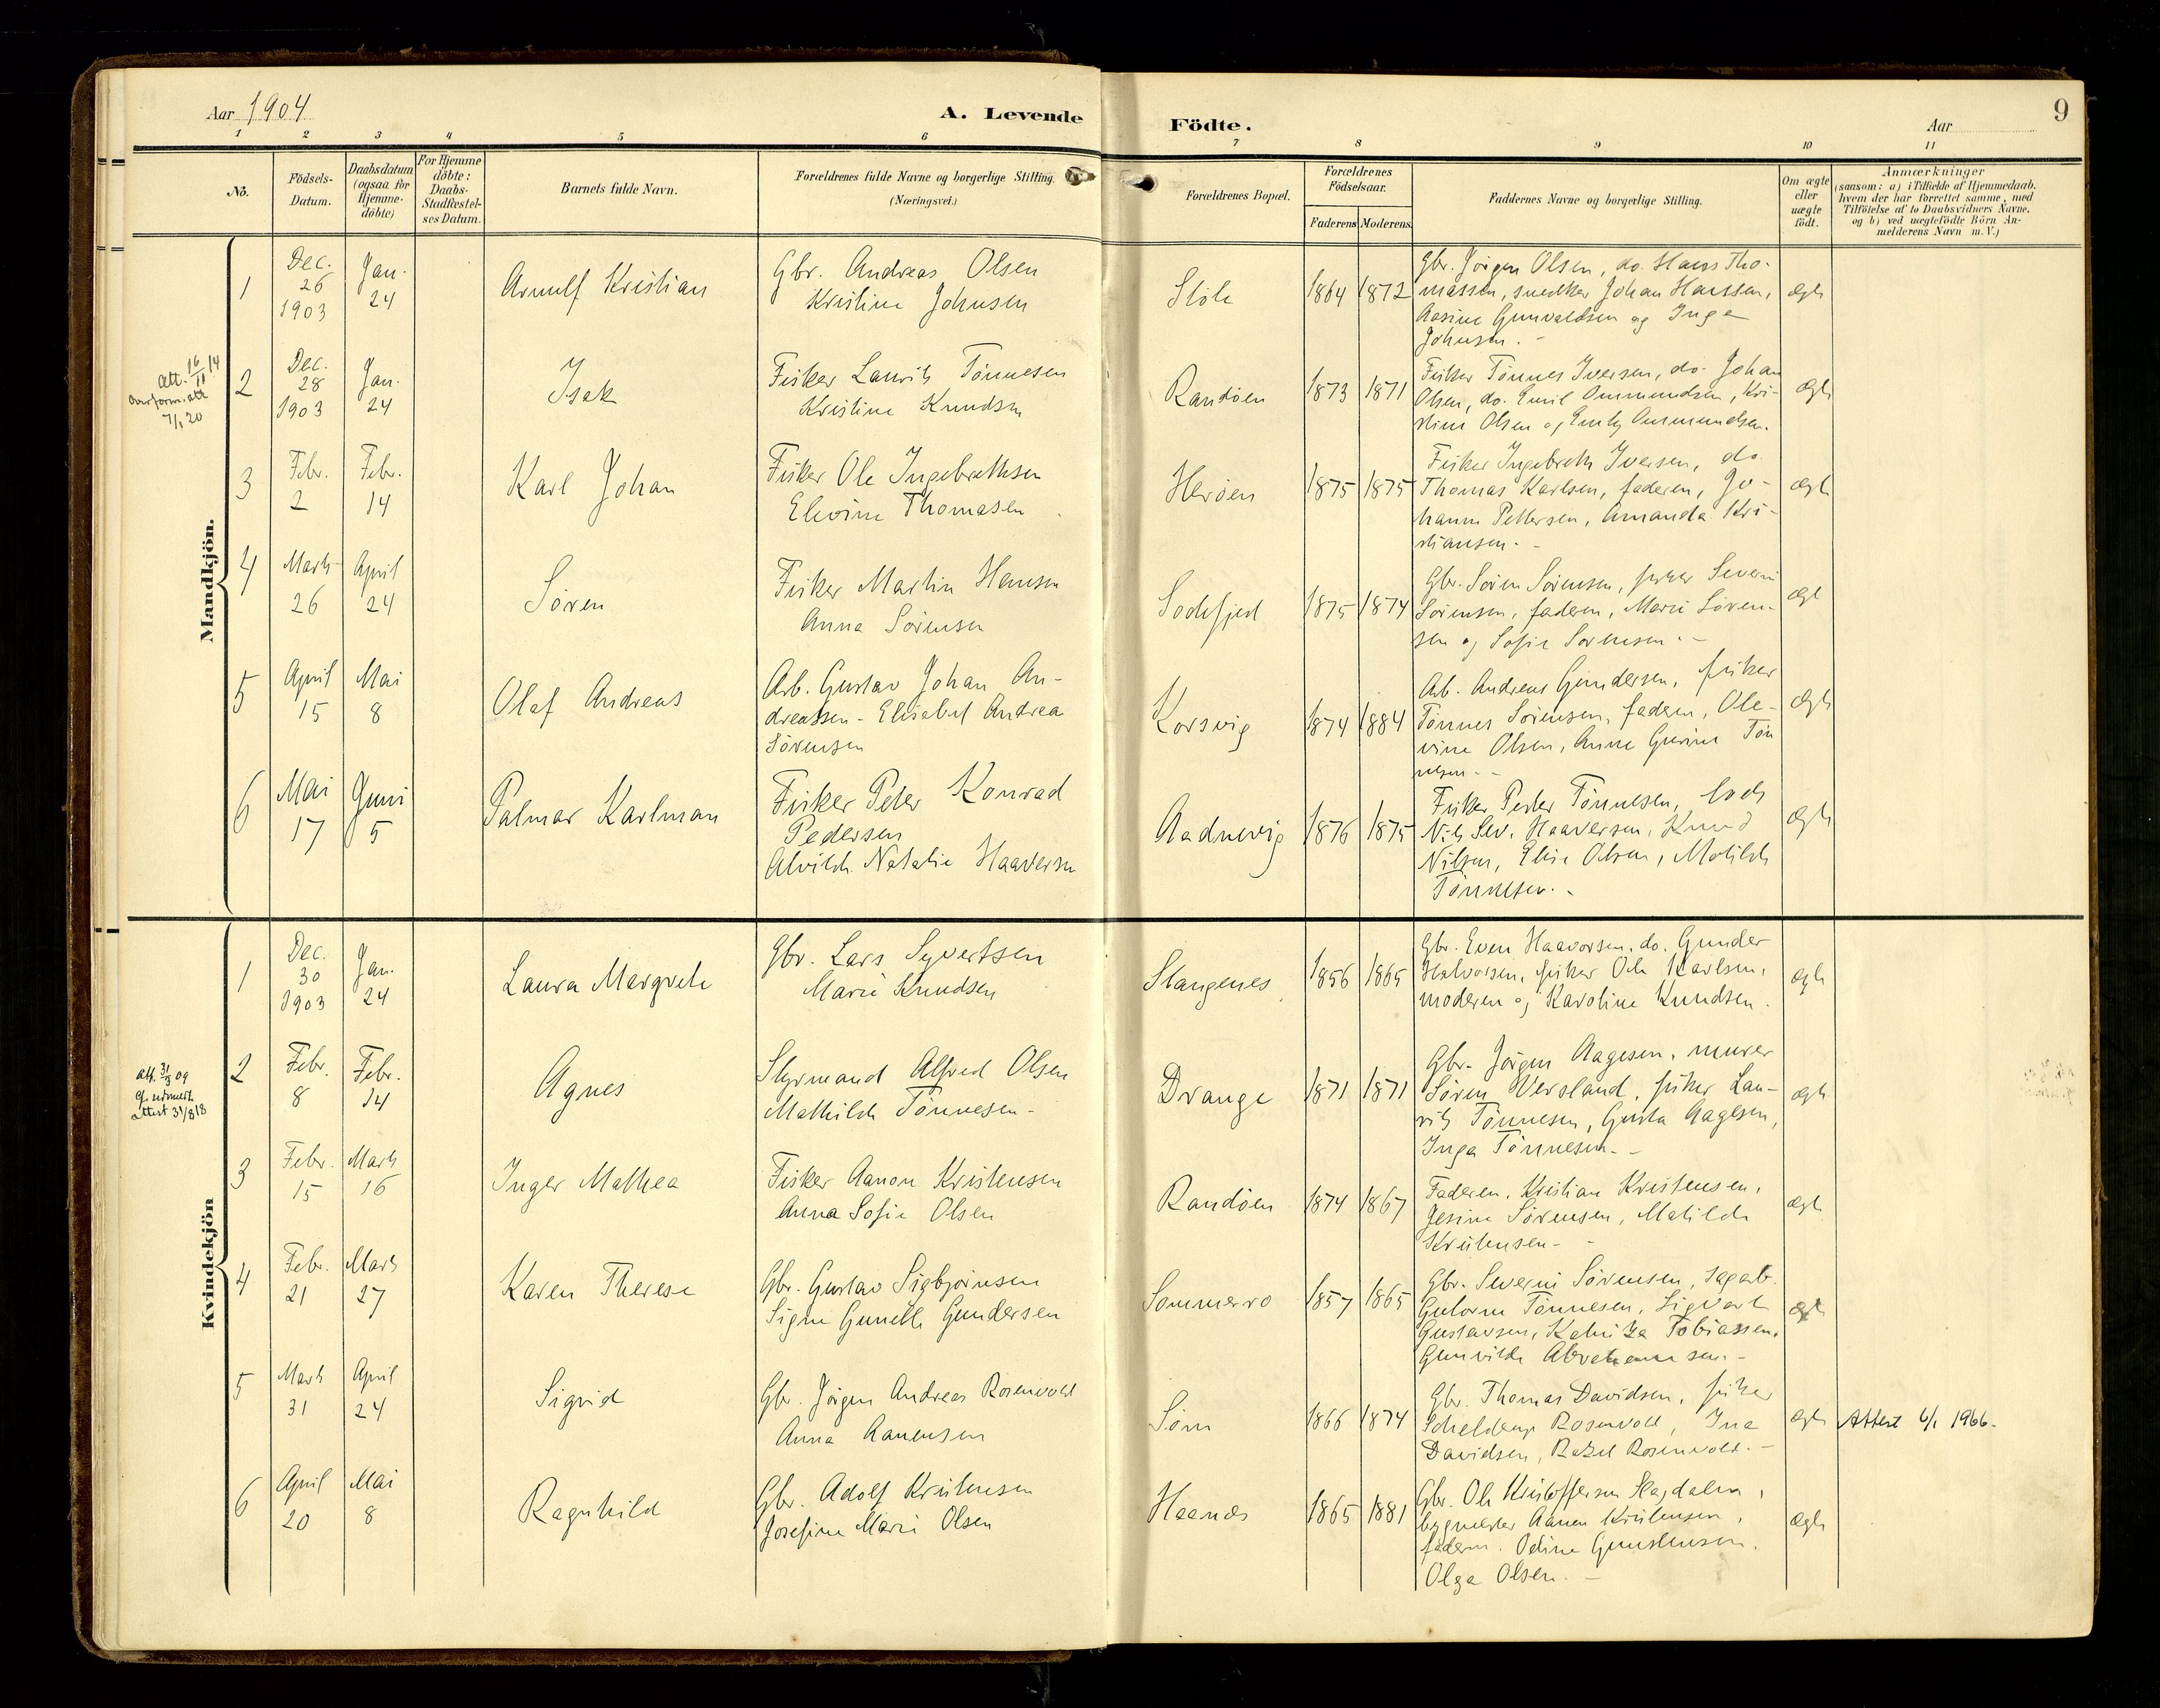 Aar 1904
A. Levende
Födte.
Aar
9
1 2 3 4 5 6 7 8 9 10 11
No.
Födsels-Datum.
Daabsdatum (ogsaa for Hjemme-döbte)
For Hjemme döbte: Daabs-Stadfæstel-ses Datum.
Barnets fulde Navn.
Forældrenes fulde Navne og borgerlige Stilling.
(Næringsvei.)
Forældrenes Bopæl.
Forældrenes Födselsaar.
Faderens Moderens
Faddernes Navne og borgerlige Stilling.
Om ægte eller uægte födt.
Anmærkninger
(saasom: a) i Tilfælde af Hjemmedaab,
hvem der har forrettet samme, med
Tilföielse af to Daabsvidners Navne,
og b) ved uægtefödte Börn An-
melderens Navn m. V.)
Mandkjön.
1
Dec. 26 1903
Jan. 24
Arnulf Kristian
Gbr. Andreas Olsen
Kristine Johnsen
1864 1872
Gbr. Jörgen Olsen, do. Hans Tho-
massen, snedker Johan Hanssen,
Aasine Gunvaldsen og Inga
Johnsen.
ægte
Att. 16/11 14
7/1 20
2
Dec. 28 1903
Jan. 24
Isak
Fisker Lauritz Tönnesen
Kristine Knudsen
Randöen
1873 1871
Fisker Tönnes Iversen, do. Johan
Olsen, do. Emil Ommundsen, Kri-
stine Olsen og Emly Ommundsen.
ægte
3
Febr. 2
Febr. 14
Karl Johan
Fisker Ole Ingebrethsen
Elevine Thomasen
Heröen
1875 1875
Fisker Ingebreth Iversen, do.
Thomas Karlsen, faderen, Jo-
hanne Pettersen, Amanda Kri-
stiansen.
ægte
4
Marts 26
April 24
Sören
Fisker Martin Hansen
Anna Sörensen
1875 1874
Gbr. Sören Sörensen, fisker Severin
Sörensen, faderen, Marie Sören-
sen og Sofie Sörensen.
ægte
5
April 15
Mai 8
Olaf Andreas
Arb. Gustav Johan An-
dreassen - Elisabet Andrea
Sörensen
Korsvig
1874 1884
Arb. Andreas Gundersen, fisker
Tönnes Sörensen, faderen, Ole-
vine Olsen, Anne Gurine Tön
nesen.
ægte
6
Mai 17
Juni 5
Palmar Karlman
Fisker Peter Konrad
Pedersen
Alvilde Natalie Haaversen
Aadnevig
1876 1875
Fisker Peder Tönnesen, lods
Nils Sev. Haaversen, Knud
Nilsen, Elise Olsen, Matilde
Tönnesen.
ægte
Kvindekjön
1
Dec. 30 1903
Jan. 24
Laura Margrete
Gbr. Lars Syvertsen
Marie Knudsen
Stangenes
1856 1865
Gbr. Even Haavorsen, do. Gunder
Halvorsen, fisker Ole Karlsen,
moderen og Karoline Knudsen.
ægte
att. 31/3 09
attest 31/8 18
2
Febr. 8
Febr. 14
Agnes
Styrmand Alfred Olsen
Mathilde Tönnesen
Drange
1871 1871
Gbr. Jörgen Aagesen, murer
Sören Versland, fisker Lau-
rits Tönnesen, Gusta Aagesen,
Inga Tönnesen.
ægte
3
Febr. 15
Marts 16
Inger Mathea
Fisker Aanon Kristensen
Anna Sofie Olsen
Randöen
1874 1867
Faderen, Kristian Kristensen,
Jesine Sörensen, Matilde
Kristensen.
ægte
4
Febr. 21
Marts 27
Karen Therese
Gbr. Gustav Sigbjörnsen
Signe Gunelle Gundersen
Sommerro
1857 1865
Gbr. Severin Sörensen, sagarb.
Gutorm Tönnesen, Sigvart
Gustavsen, Katriza Tobiassen,
Gunvilde Abrahamsen.
ægte
5
Marts 31
April 24
Sigrid
Gbr. Jörgen Andreas Rosenvold
Anna Aanensen
Söm
1866 1874
Gbr. Thomas Davidsen, fisker
Scheldrup Rosenvold, Ina
Davidsen, Rakel Rosenvold.
ægte
Attest 6/1 1966.
6
April 20
Mai 8
Ragnhild
Gbr. Adolf Kristensen
Josefine Marie Olsen
Haanes
1865 1881
Gbr. Ole Kristoffersen Slagdalen,
bygmester Aanen Kristensen,
faderen. Odine Gunstensen,
Olga Olsen.
ægte